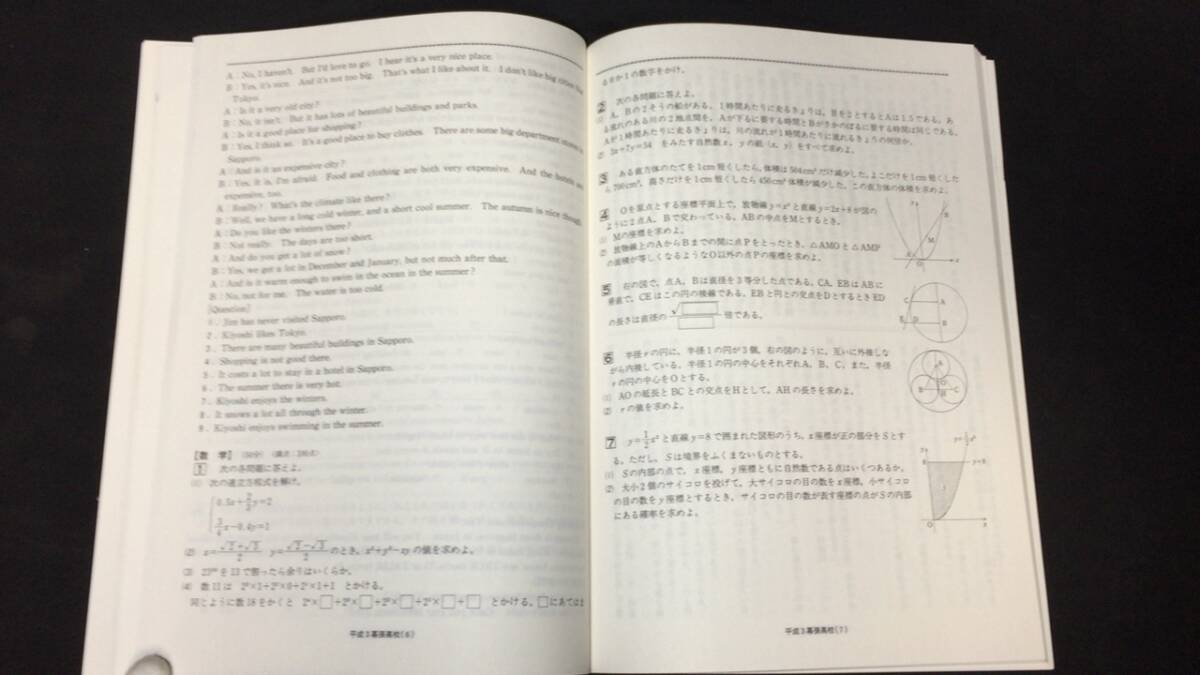 A：No, I haven't. But I'd love to go. I hear it's a very nice place.
B：Yes, it's nice. And it's not too big. That's what I like about it. I don't like big cities like
Tokyo.
A：Is it a very old city?
B：No, it isn't. But it has lots of beautiful buildings and parks.
A：Is it a good place for shopping?
B：Yes, I think so. It's a good place to buy clothes. There are some big department stores in
Sapporo.
A：And is it an expensive city?
B：Yes, it is, I'm afraid. Food and clothing are both very expensive. And the hotels are
expensive, too.
A：Really? What's the climate like there?
B：Well, we have a long cold winter, and a short cool summer. The autumn is nice though.
A：Do you like the winters there?
B：Not really. The days are too short.
A：And do you get a lot of snow?
B：Yes, we get a lot in December and January, but not much after that.
A：And is it warm enough to swim in the ocean in the summer?
B：No, not for me. The water is too cold.
[Question]
1．Jim has never visited Sapporo.
2．Kiyoshi likes Tokyo.
3．There are many beautiful buildings in Sapporo.
4．Shopping is not good there.
5．It costs a lot to stay in a hotel in Sapporo.
6．The summer there is very hot.
7．Kiyoshi enjoys the winters.
8．It snows a lot all through the winter.
9．Kiyoshi enjoys swimming in the summer.
[数 学] (50分) (満点：100点)
1 次の各問題に答えよ。
(1) 次の連立方程式を解け。
0.5x+2/3y=2
3/4x−0.4y=1
(2) x=(√2+√3)/2 y=(√2−√3)/2 のとき，x²+y²−xy の値を求めよ。
(3) を13で割ったら余りはいくらか。
(4) 数11は 2³×1+2²×0+2¹×1+1 とかける。
同じように数18をかくと 2⁴×□+2³×□+2²×□+2¹×□+□ とかける。□にあてはま
平成3幕張高校(6)
る0か1の数字をかけ。
2 次の各問題に答えよ。
(1) A，Bの2そうの船がある。1時間あたりに走るきょりは，Bを2とするとAは1.5である。あ
る流れのある川の2地点間を，Aが下るに要する時間とBがさかのぼるに要する時間は同じである。
Aが1時間あたりに走るきょりは，川の流れが1時間あたりに流れるきょりの何倍か。
(2) 5x+7y=54 をみたす自然数x，yの組(x, y)をすべて求めよ。
3 ある直方体のたてを1cm短くしたら，体積は504cm³だけ減少した。よこだけを1cm短くした
ら700cm³，高さだけを1cm短くしたら450cm³体積が減少した。この直方体の体積を求めよ。
4 Oを原点とする座標平面上で，放物線y=x²と直線y=2x+8が図の
ように2点A，Bで交わっている。ABの中点をMとするとき，
(1) Mの座標を求めよ。
(2) 放物線上のAからBまでの間に点Pをとったとき，△AMOと△AMP
の面積が等しくなるようなO以外の点Pの座標を求めよ。
y
B
M
A
O
x
5 右の図で，点A，Bは直径を3等分した点である。CA，EBはABに
垂直で，CEはこの円の接線である。EBと円との交点をDとするときED
の長さは直径の √□/□ 倍である。
C
A
E
D
B
6 半径rの円に，半径1の円が3個，右の図のように，互いに外接しな
がら内接している。半径1の円の中心をそれぞれA，B，C，また，半径
rの円の中心をOとする。
(1) AOの延長とBCとの交点をHとして，AHの長さを求めよ。
(2) rの値を求めよ。
A
O
B
H
C
7 y=1/2x²と直線y=8で囲まれた図形のうち，x座標が正の部分をSとす
る。ただし，Sは境界をふくまないものとする。
(1) Sの内部の点で，x座標，y座標ともに自然数である点はいくつあるか。
(2) 大小2個のサイコロを投げて，大サイコロの目の数をx座標，小サイコロ
の目の数をy座標とするとき，サイコロの目の数が表す座標の点がSの内部
にある確率を求めよ。
y
y=1/2x²
8
y=8
O
x
平成3幕張高校(7)